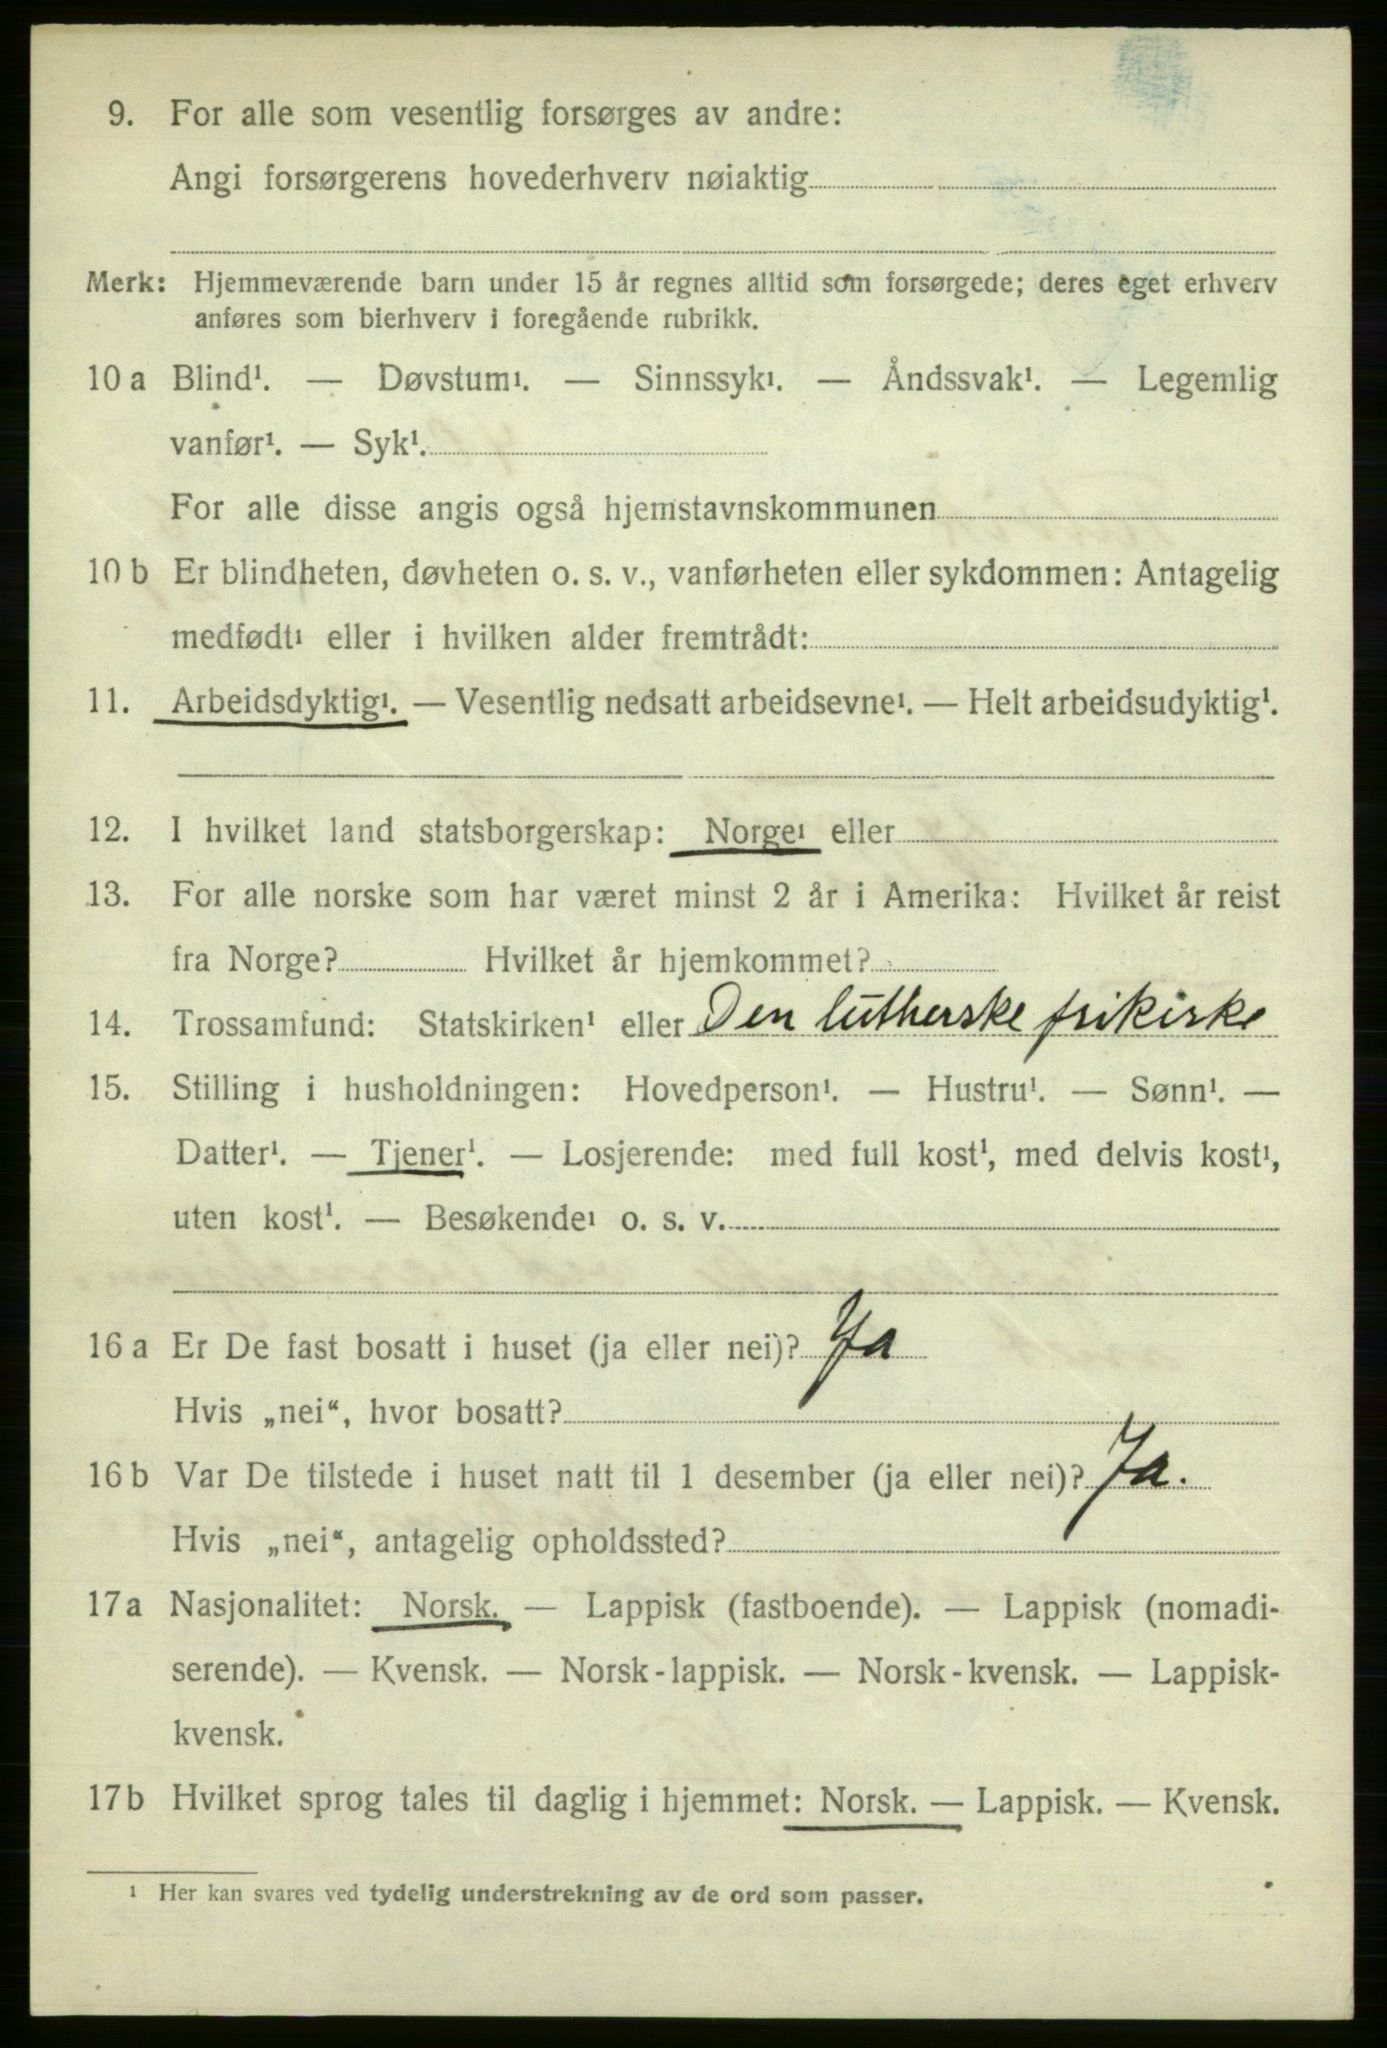 9. For alle som vesentlig forsørges av andre:
Angi forsørgerens hovederhverv nøiaktig
Merk: Hjemmeværende barn under 15 år regnes alltid som forsørgede; deres eget erhverv
anføres som bierhverv i foregående rubrikk.
10 a Blind¹. — Døvstum¹. — Sinnssyk¹. — Åndssvak¹. — Legemlig
vanfør¹. — Syk¹.
For alle disse angis også hjemstavnskommunen
10 b Er blindheten, døvheten o. s. v., vanførheten eller sykdommen: Antagelig
medfødt¹ eller i hvilken alder fremtrådt:
11. Arbeidsdyktig¹. — Vesentlig nedsatt arbeidsevne¹. — Helt arbeidsudyktig¹.
12. I hvilket land statsborgerskap: Norge¹ eller
13. For alle norske som har været minst 2 år i Amerika: Hvilket år reist
fra Norge? Hvilket år hjemkommet?
14. Trossamfund: Statskirken¹ eller Den lutherske frikirke
15. Stilling i husholdningen: Hovedperson¹. — Hustru¹. — Sønn¹. —
Datter¹. — Tjener¹. — Losjerende: med full kost¹, med delvis kost¹,
uten kost¹. — Besøkende¹ o. s. v.
16 a Er De fast bosatt i huset (ja eller nei)? Ja
Hvis „nei“, hvor bosatt?
16 b Var De tilstede i huset natt til 1 desember (ja eller nei)? Ja.
Hvis „nei“, antagelig opholdssted?
17 a Nasjonalitet: Norsk. — Lappisk (fastboende). — Lappisk (nomadi-
serende). — Kvensk. — Norsk-lappisk. — Norsk-kvensk. — Lappisk-
kvensk.
17 b Hvilket sprog tales til daglig i hjemmet: Norsk. — Lappisk. — Kvensk.
¹ Her kan svares ved tydelig understrekning av de ord som passer.